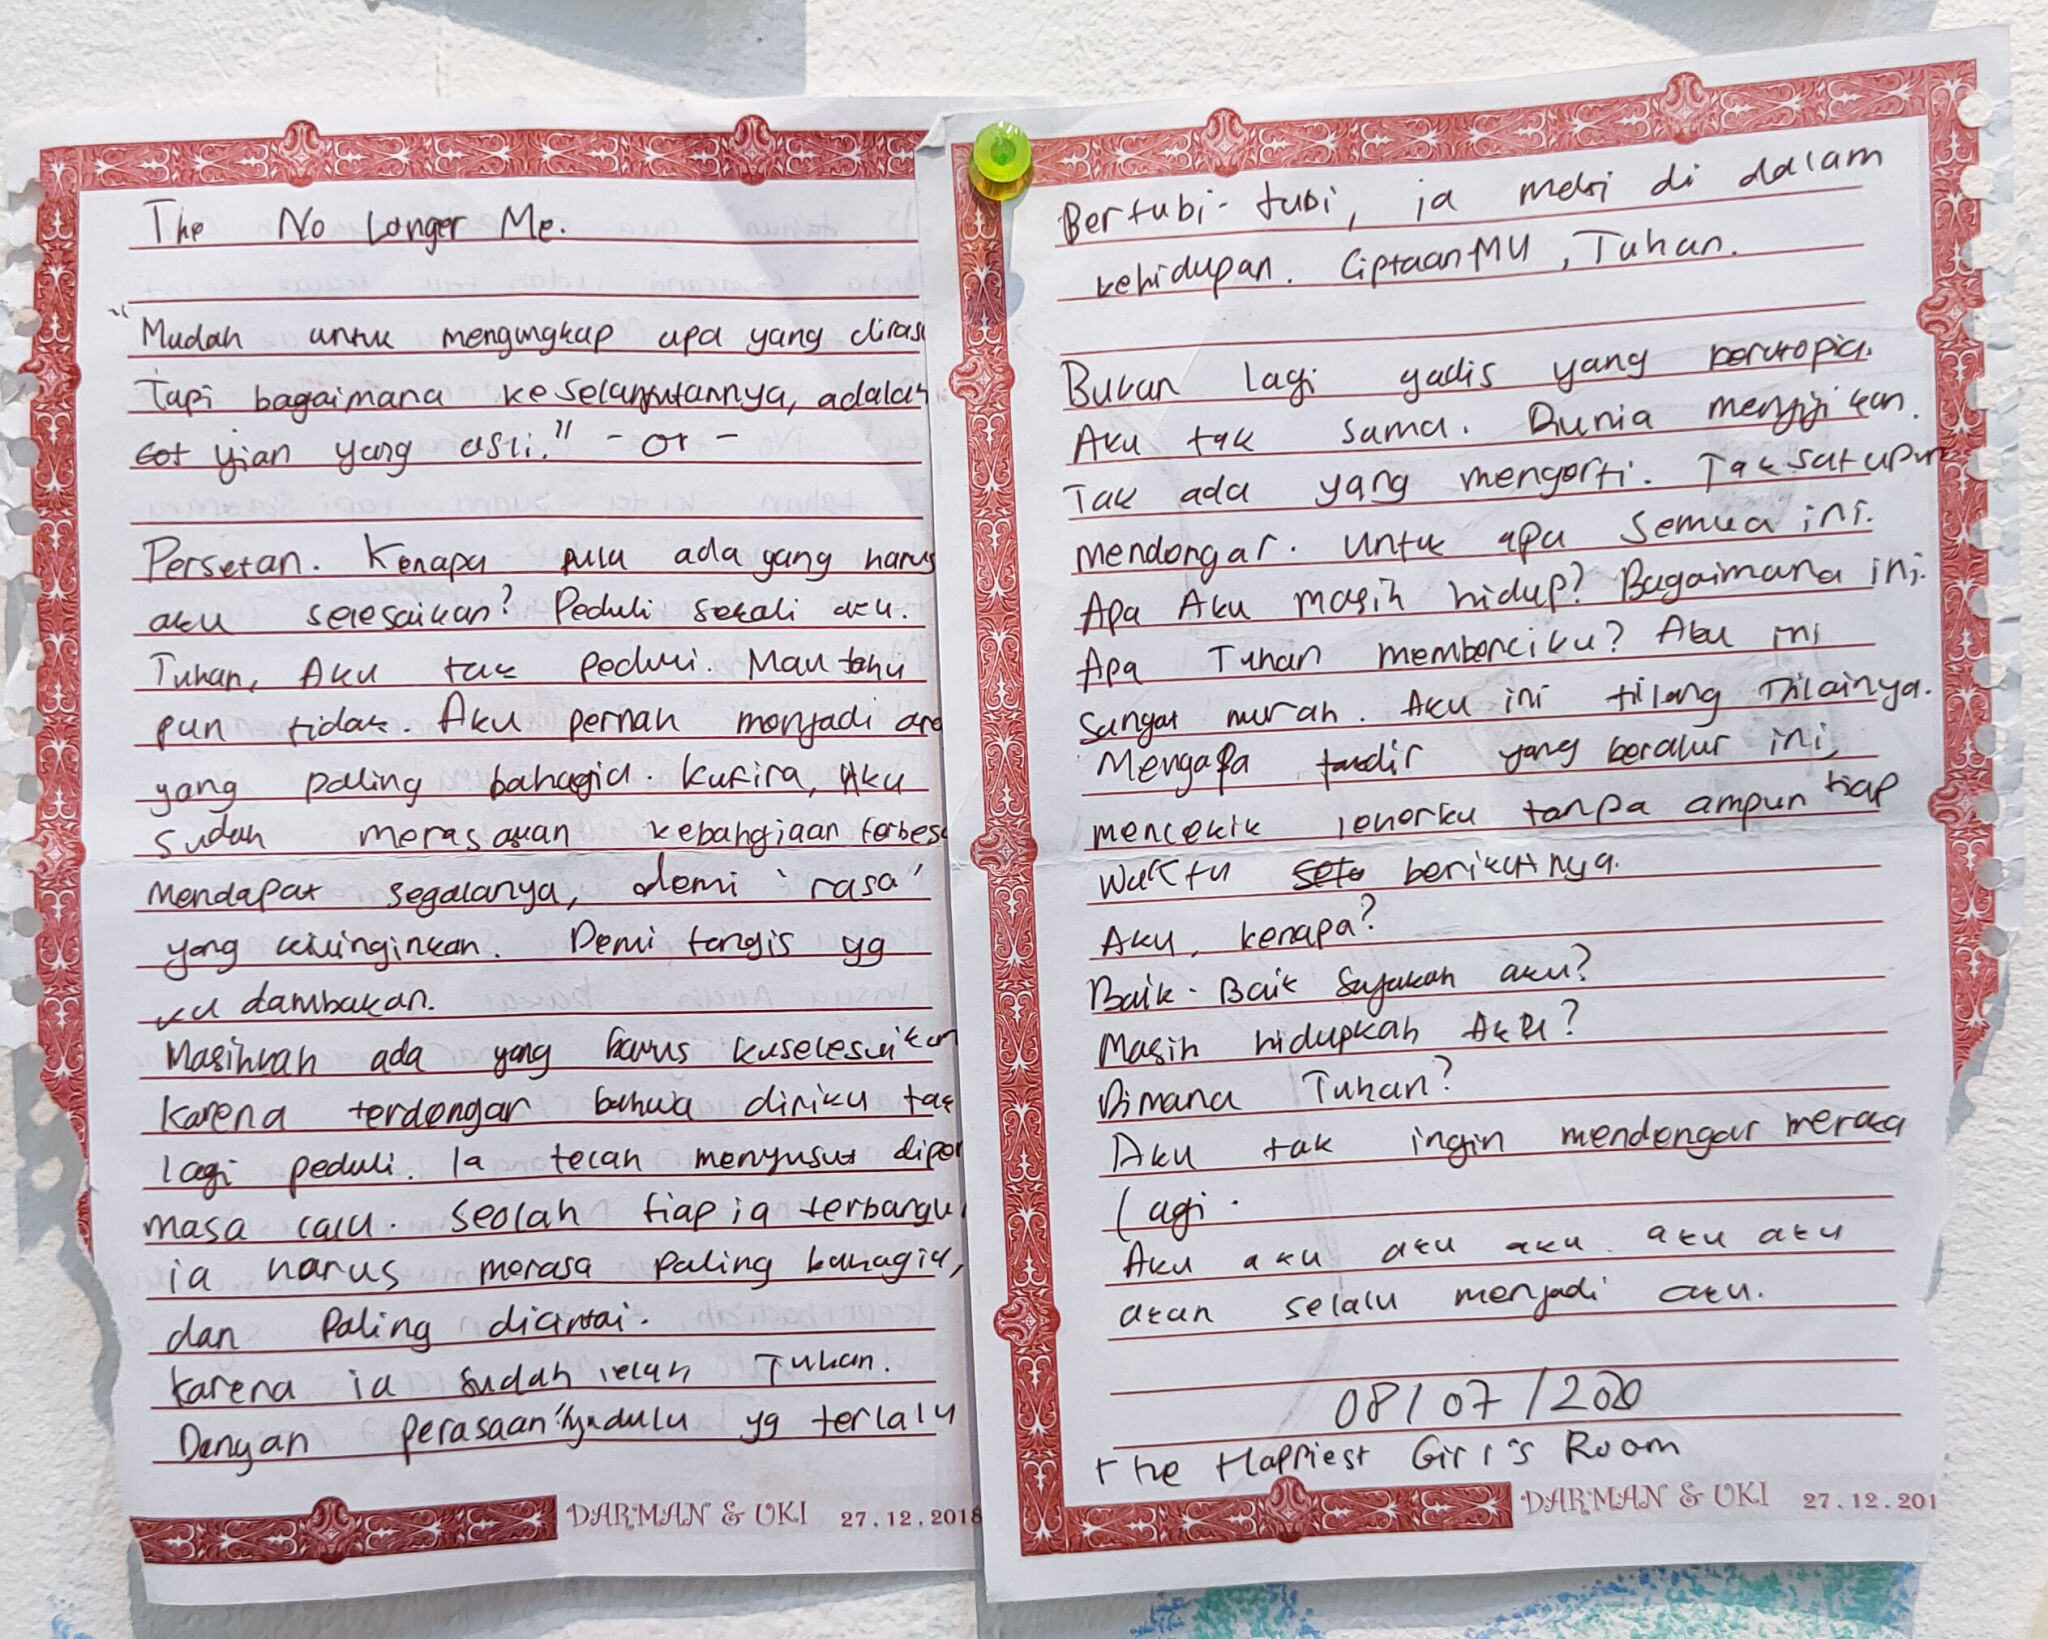 The No Longer Me.
"Mudah untuk mengungkap apa yang diras
Tapi bagaimana keselanjutannya, adalah
yian yang asli." - or -
Persetan. Kenapa pula ada yang harus
aku selesaikan? Peduli sekali aku.
Tuhan, Aku tak peduli. Mau tahu
pun tidak. Aku pernah menjadi
yang paling bahagia. Kukira, Aku
sudah merasakan kebahgiaan terbes
Mendapat segalanya, demi 'rasa'
yang kuinginkan. Demi tangis yg
ku dambakan.
Masihkah ada yang harus kuselesaikan
Karena terdengar bahwa diriku tak
lagi peduli. Ia telah menyusut diper
masa lalu. Seolah tiap ia terbangu
ia harus merasa paling bahagia,
dan Paling dicintai.
Karena ia sudah lelah Tuhan.
Dengan perasaan dulu yg terlalu
DARMAN & UKI 27.12.2018
Bertubi-tubi, ia mati di dalam
kehidupan. CiptaanMU, Tuhan.
Bukan lagi gadis yang berutopia.
Aku tak sama. Dunia menjijikan.
Tak ada yang mengerti. Tak satupun
mendengar. Untuk apa semua ini.
Apa Aku masih hidup? Bagaimana ini.
Apa Tuhan membenciku? Aku ini
Sangat murah. Aku ini hilang nilainya.
Mengapa takdir yang beralur ini,
mencekik leherku tanpa ampun tiap
waktu berikutnya.
Aku, kenapa?
Baik-Baik Sajakah aku?
Masih hidupkah Aku?
Dimana Tuhan?
Aku tak ingin mendengar mereka
lagi.
Aku aku aku aku. aku aku
akan selalu menjadi aku.
08/07/2020
The Happiest Girl's Room
DARMAN & UKI 27.12.201